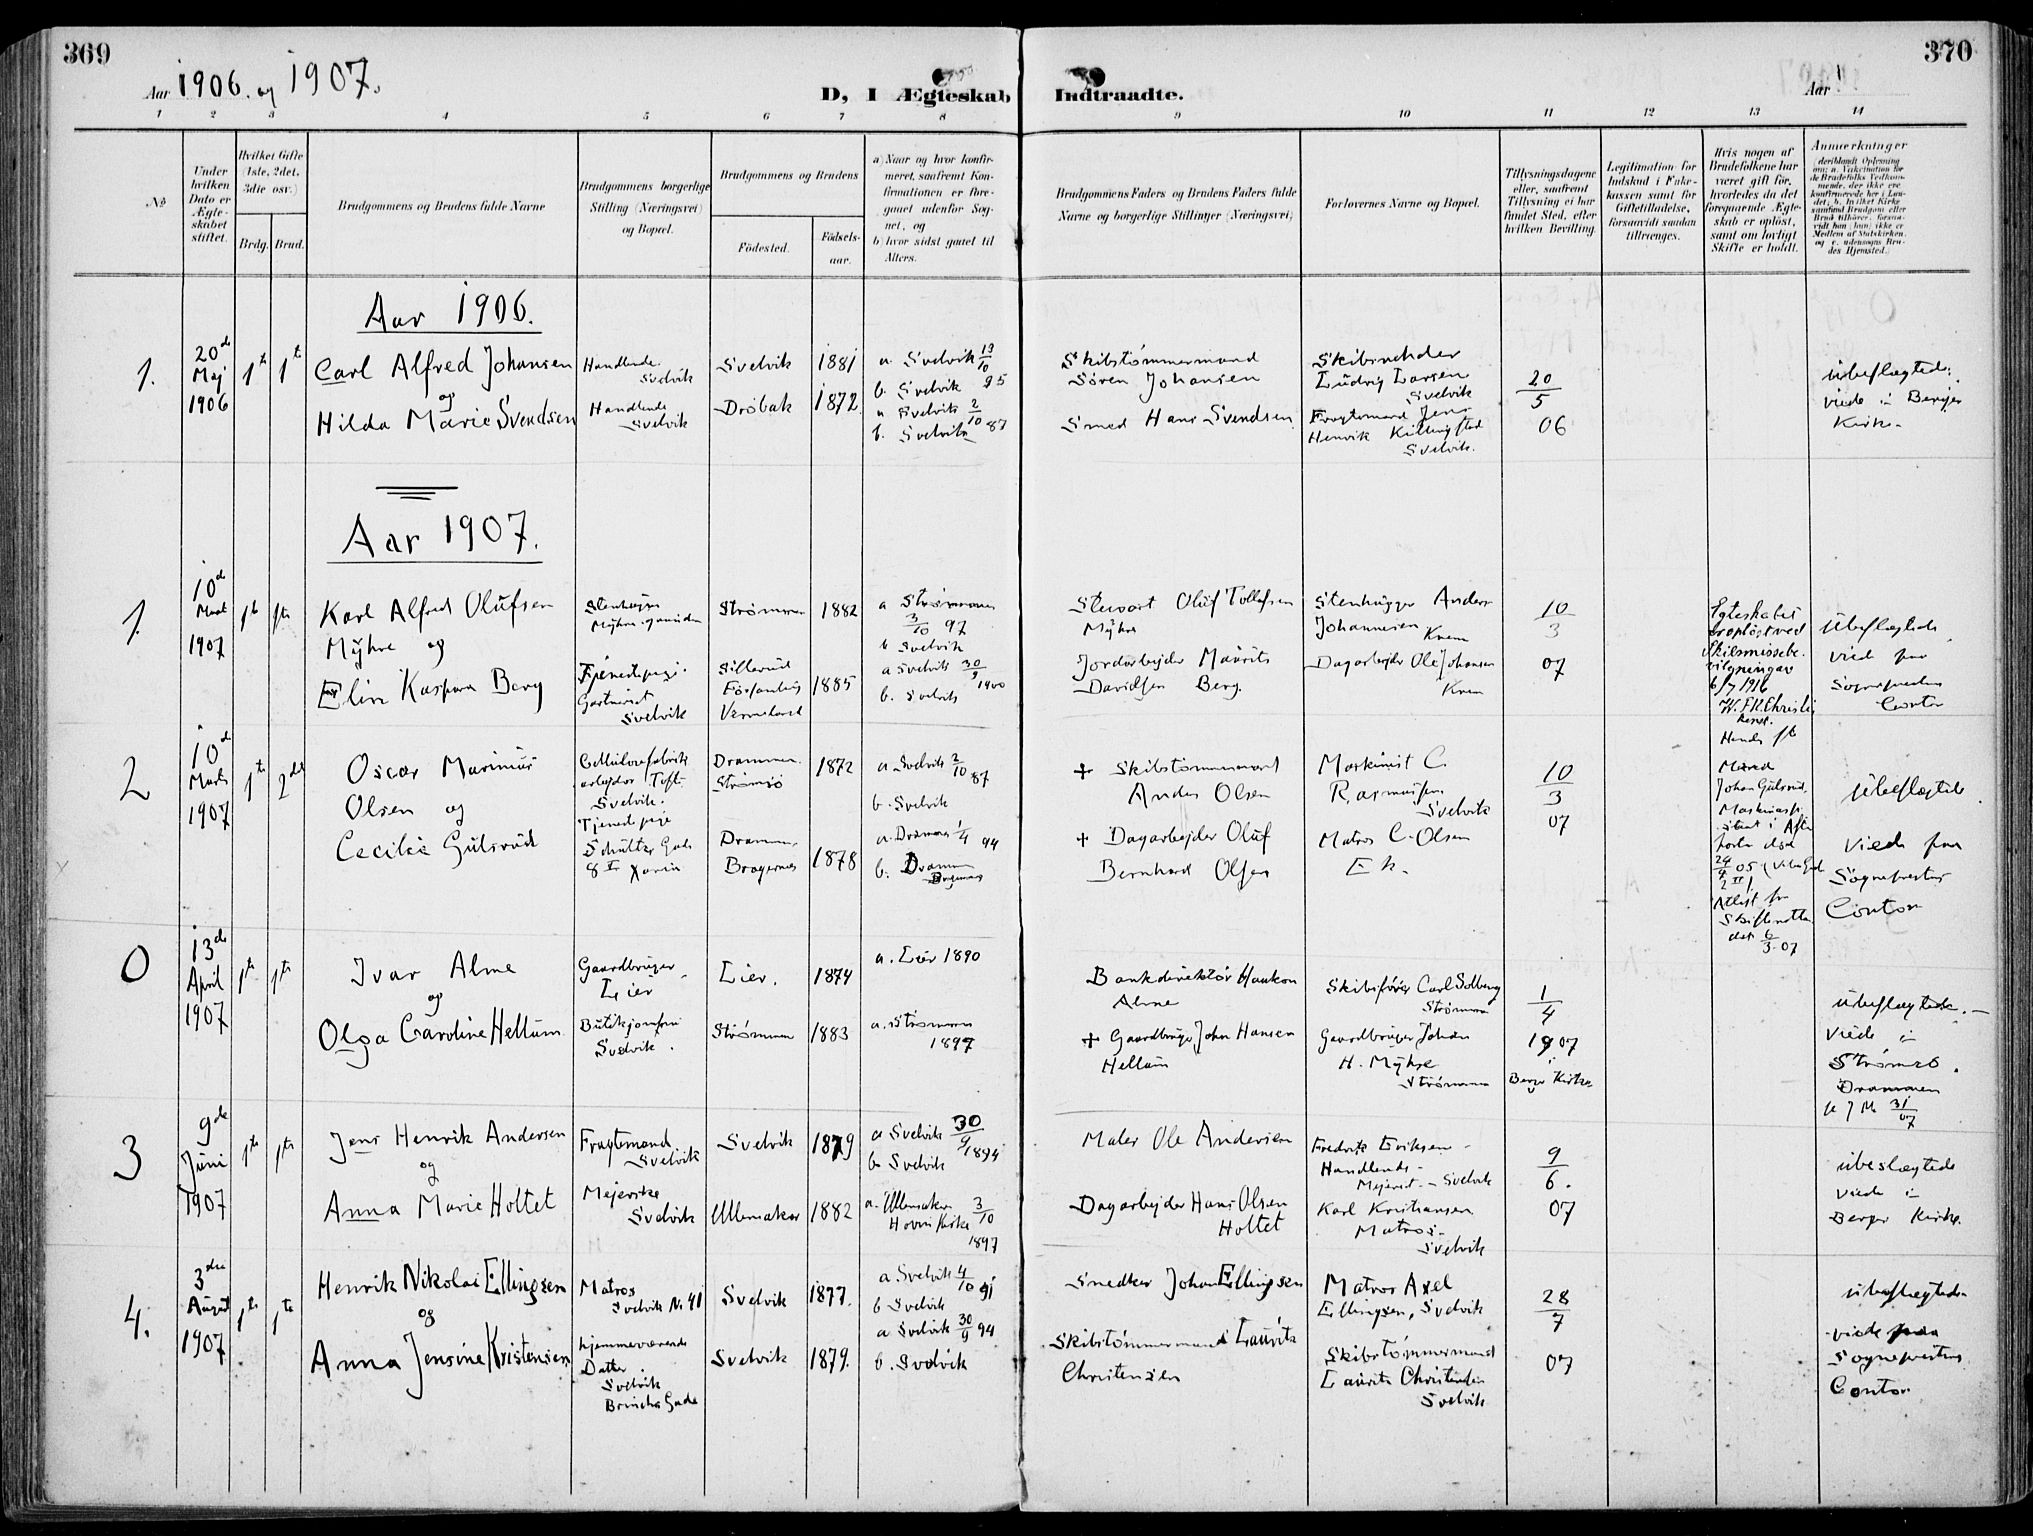 369
370
Aar 1906. og 1907.
D, I Ægteskab Indtraadte.
Aar
1 2 3 4 5 6 7 8 9 10 11 12 13 14
No
Under hvilken Dato er Ægteskabet stiftet.
Hvilket Gifte (1ste, 2det, 3die osv.)
Brdg. Brud.
Brudgommens og Brudens fulde Navne
Brudgommens borgerlige Stilling (Næringsvei) og Bopæl.
Brudgommens og Brudens
Fødested.
Fødselsaar.
a) Naar og hvor konfirmeret, saafremt Konfirmationen er foregaaet udenfor Sognet, og
b) hvor sidst gaaet til Alters.
Brudgommens Faders og Brudens Faders fulde Navne og borgerlige Stillinger (Næringsvei)
Forlovernes Navne og Bopæl.
Tillysningsdagene eller, saafremt Tillysning ei har fundet Sted, efter hvilken Bevilling.
Legitimation for Indskud i Enkekassen samt for Giftetilladelse, forsaavidt saadan tiltrænges.
Hvis nogen af Brudefolkene har været gift før, hvorledes da det foregaaende Ægteskab er opløst, samt om lovligt Skifte er holdt.
Anmærkninger
Aar 1906.
1.
20de Maj 1906
1te 1te
Carl Alfred Johansen
og
Hilda Marie Svendsen
Handlende Svelvik
Handlende Svelvik
Svelvik 1881
Drøbak 1872
a. Svelvik 13/10 95
b. Svelvik
a Svelvik 2/10 87
b. Svelvik
Skibstømmermand
Sören Johansen
Smed Hans Svendsen
Skibsreder
Ludvig Larsen
Svelvik
Fragtemand Jens
Henrik Killingstad
Svelvik.
20/5 06
Ubeslægtede:
viede i Berger
Kirke.
Aar 1907.
1.
10de Mart 1907
1te 1te
Karl Alfred Olufsen
Myhre og
Elin Kaspara Berg
Stenhugger
Strømmen 1882
Svelvik
1885
a Strømmen
3/10 97
b Svelvik
a Svelvik 30/9 1900
b. Svelvik
Stuvart Oluf Tollefsen
Myhre
Jordarbejder Mauritz
Davidsen Berg.
Stenhugger Anders
Johannesen
Dagarbejder Ole Johansen
10/3 07
Egteskabet
er opløst ved
Skilsmissebe-
vilgning av
6/7 1916
Ubeslægtede
Viede paa
Sognepresten
Contor
2
10de Marts 1907
1te 2det
Oscar Marinius
Olsen og
Cecilie Gulsrud
Cellulosefabrik
arbejder Tofte
Svelvik.
Tjenestepige
Drammen
Strømsø 1872
Drammen,
Bragernes 1878
a Svelvik 2/10 87
b. Svelvik
a. Drammen 1/4 94
b. Drammen
Bragernes
+ Skibstømmermand
Anders Olsen
+ Dagarbejder Oluf
Bernhard Olsen
Maskinist C.
Rasmussen
Svelvik
Matros C. Olsen
Ek.
10/3 07
Johan Gulsrud,
24/4 05
6/3 07
Ubeslægtede
Viede paa
Sognepresten
Contor
0
13de April 1907
1te 1te
Ivar Alme
og
Olga Caroline Hellum
Gaardbruger
Lier
Butikjomfru
Svelvik.
Lier. 1874
Strømmen 1883
a. Lier 1890
a. Strømmen
1897
Bankdirektør Haakon
Alme
+ Gaardbruger John Hansen
Hellum
Skibsfører Carl Solberg
Strømmen
Gaardbruger Johan
H. Myhre
Strømmen
1/4 1907
i
Berger Kirke
Ubeslægtede.
Viede i
Strømsø.
Drammen
31/07
3
9de Juni 1907
1te 1te
Jens Henrik Andersen
og
Anna Marie Holtet
Fragtemand
Svelvik
Mejerske
Svelvik
Svelvik 1879
Ullensaker 1882
a Svelvik 30/9 1894
b. Svelvik
a. Ullensaker
Hovin Kirke 3/10
1897
Maler Ole Andersen
Dagarbejder Hans Olsen
Holtet
Fredrik Eriksen
Handlende
Mejerist - Svelvik
Karl Kristiansen
Matros
Svelvik
9/6. 07
Ubeslægtede
Viede i
Berger Kirke.
4.
3die August 1907
1te 1te
Henrik Nikolai Ellingsen
og
Anna Jensine Kristensen
Matros
Svelvik No 41
hjemmeværende
Datter.
Svelvik
Svelvik 1877.
Svelvik 1879.
a Svelvik 4/10 91
b Svelvik
a Svelvik 30/9 94
b. Svelvik
Snedker Johan Ellingsen
Skibstømmermand Lauritz
Christensen
Matros Axel
Ellingsen, Svelvik
Skibstømmermand
Lauritz Christensen
Svelvik
28/7 07
Ubeslægtede
viede paa
Sognepresten
Contor